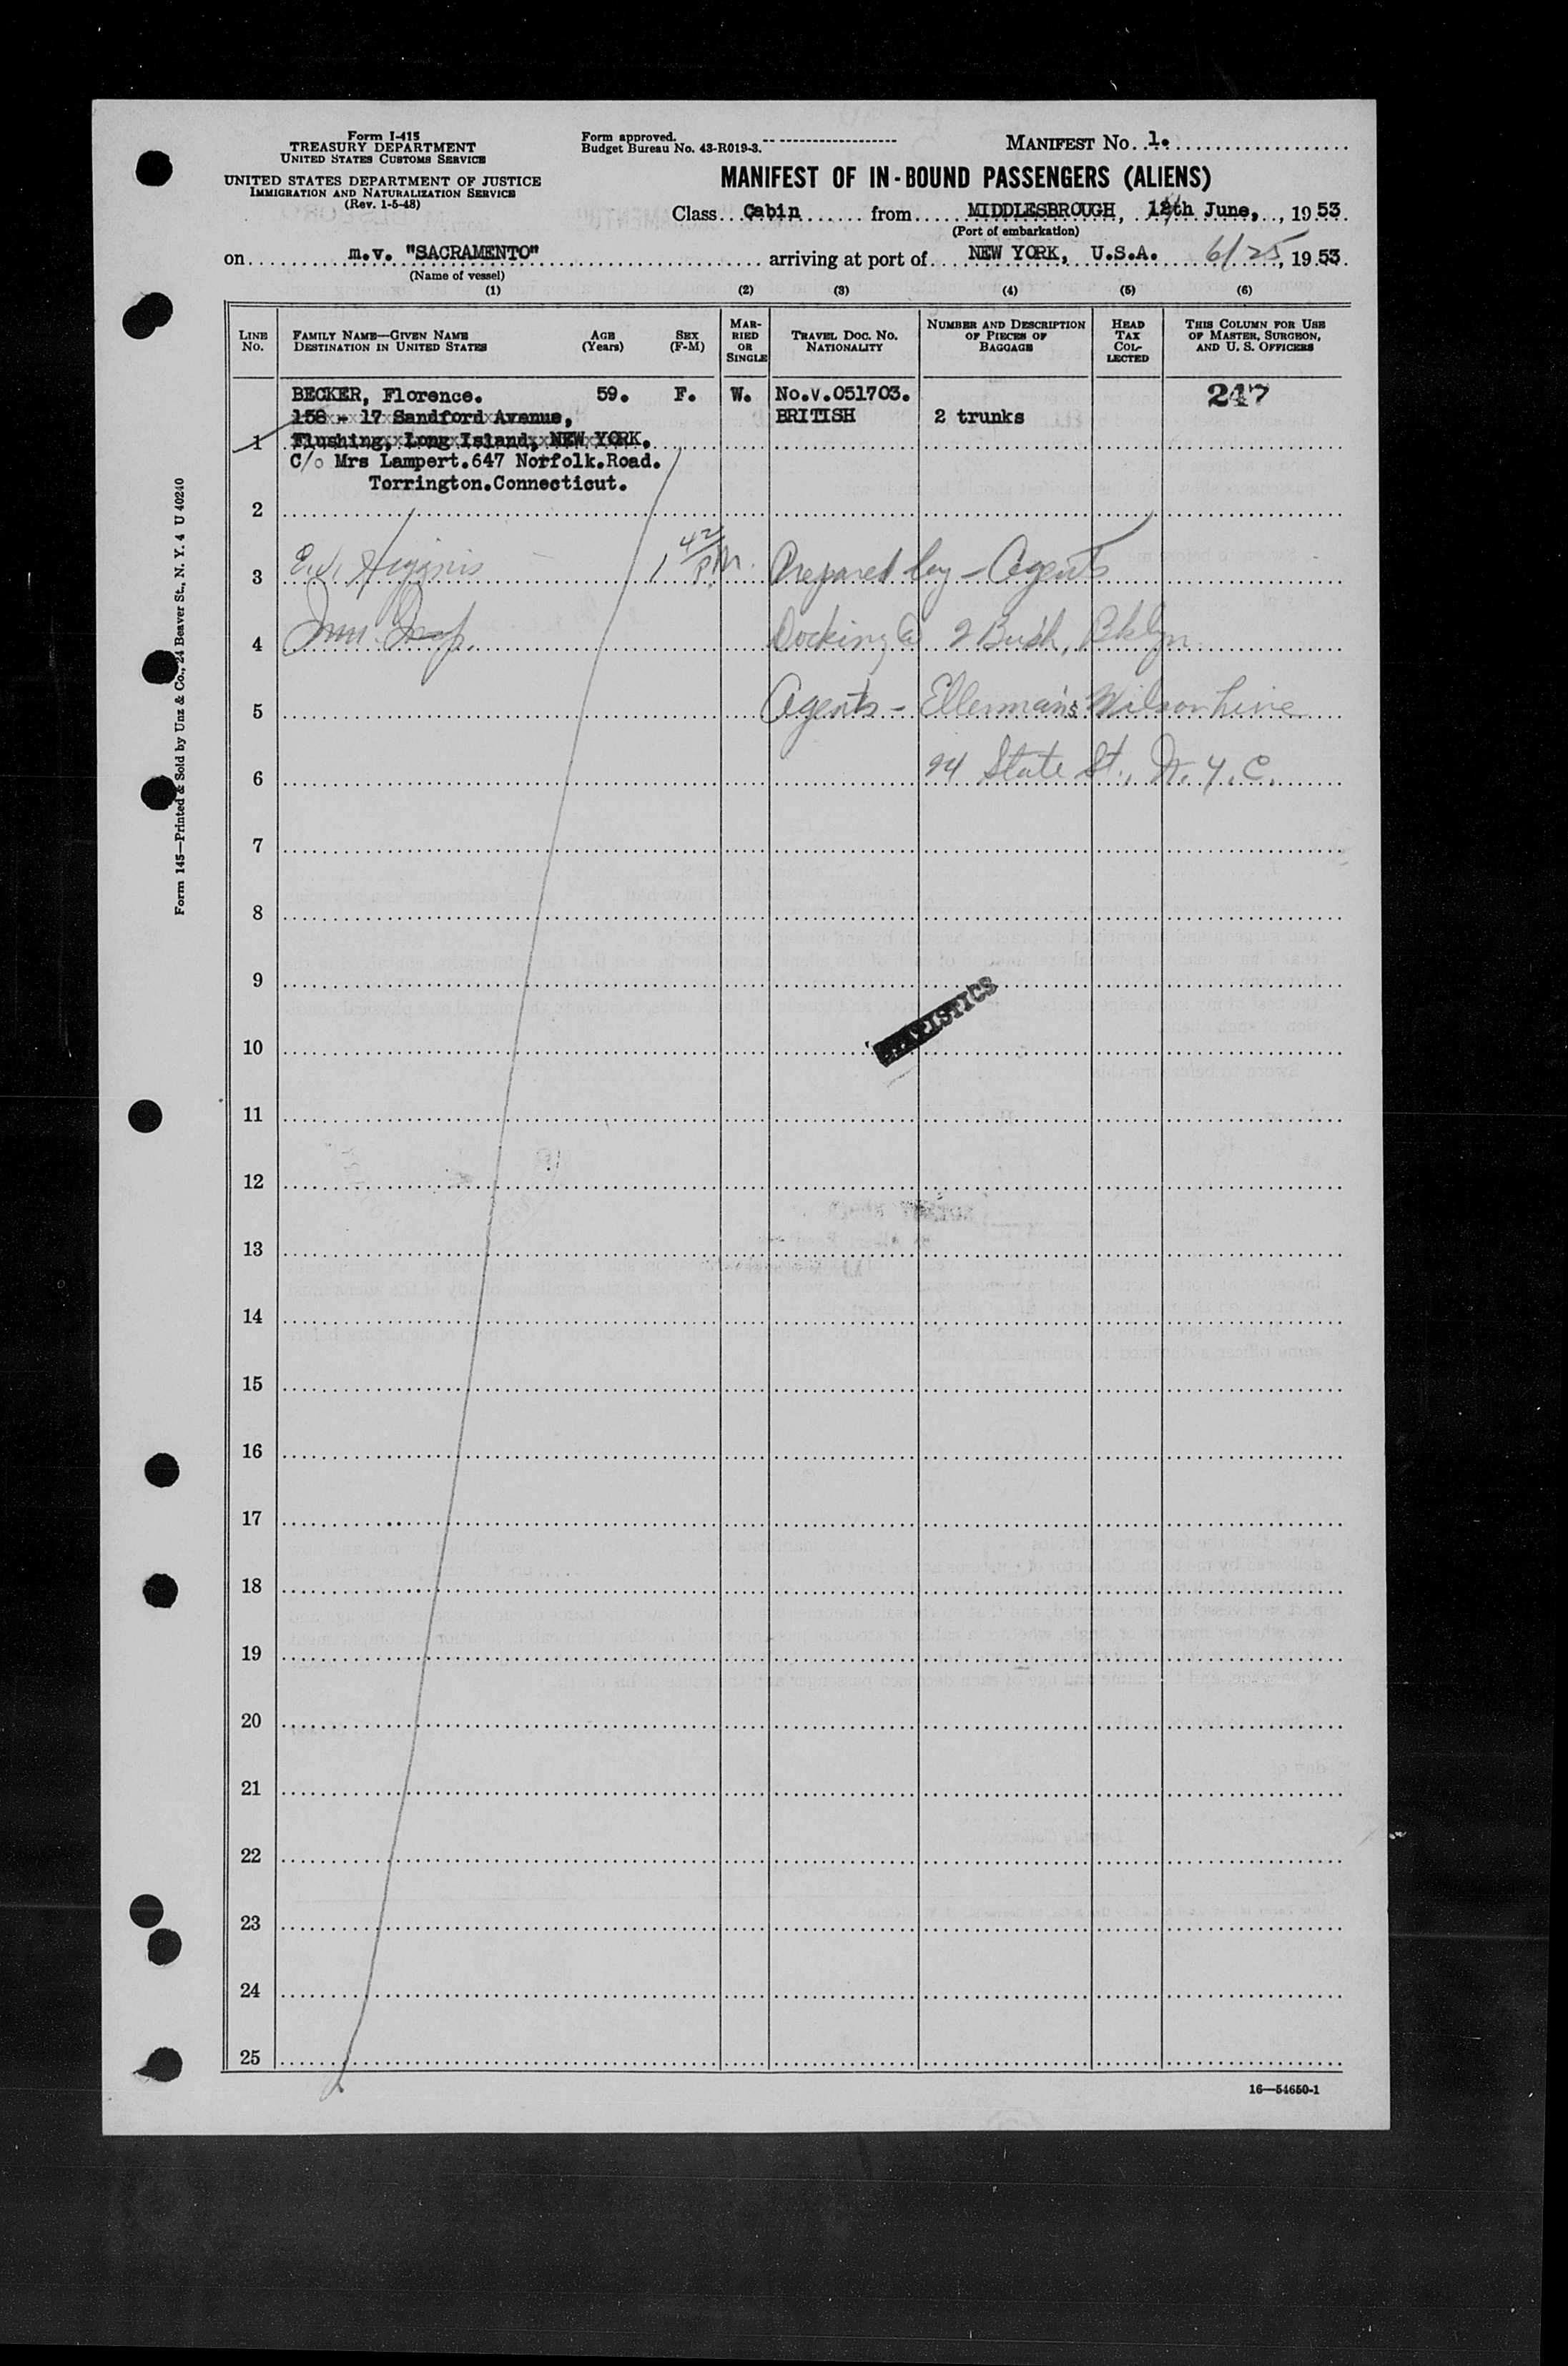 Form I-415
TREASURY DEPARTMENT
UNITED STATES CUSTOMS SERVICE
UNITED STATES DEPARTMENT OF JUSTICE
IMMIGRATION AND NATURALIZATION SERVICE
(Rev. 1-5-48)
Form approved.
Budget Bureau No. 43-R019-3.
MANIFEST No. 1.
MANIFEST OF IN-BOUND PASSENGERS (ALIENS)
Class Cabin from MIDDLESBROUGH, 12th June, , 1953.
(Port of embarkation)
on m.v. "SACRAMENTO" arriving at port of NEW YORK, U.S.A. 6/25, 1953.
(Name of vessel)
(1) (2) (3) (4) (5) (6)
LINE No. FAMILY NAME—GIVEN NAME DESTINATION IN UNITED STATES AGE (Years) SEX (F-M) MARRIED OR SINGLE TRAVEL DOC. No. NATIONALITY NUMBER AND DESCRIPTION OF PIECES OF BAGGAGE HEAD TAX COLLECTED THIS COLUMN FOR USE OF MASTER, SURGEON, AND U. S. OFFICERS
BECKER, Florence. 59. F. W. No.V.051703. 247
158 - 17 Sandford Avenue, BRITISH 2 trunks
1 Flushing, Long Island, NEW YORK.
C/o Mrs Lampert.647 Norfolk.Road.
Torrington.Connecticut.
2
3 E.J. Higgins 1 42/PM. Prepared by - Agents
4 Imm. Insp. Docking @ 2 Bush, Bklyn
5 Agents - Ellerman's Wilson Line
6 24 State St., N.Y.C.
7
8
9
STATISTICS
10
11
12
13
14
15
16
17
18
19
20
21
22
23
24
25
16—54650-1
Form 145—Printed & Sold by Unz & Co., 24 Beaver St., N. Y. 4 U 40240